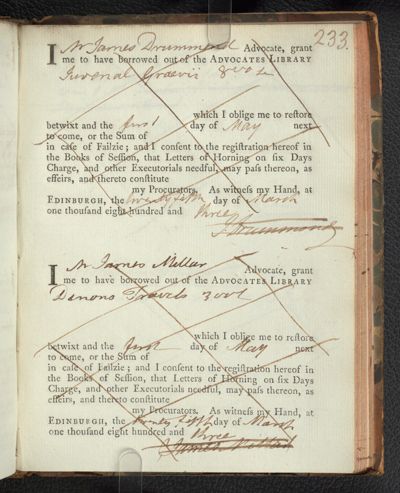 233.
I Mr James Drummond Advocate, grant
me to have borrowed out of the ADVOCATES LIBRARY
Juvenal Graevii 8vo L
which I oblige me to restore
betwixt and the first day of May next
to come, or the Sum of
in case of Failzie; and I consent to the registration hereof in
the Books of Session, that Letters of Horning on six Days
Charge, and other Executorials needful, may pass thereon, as
effeirs, and thereto constitute
my Procurators. As witness my Hand, at
EDINBURGH, the twenty fifth day of March
one thousand eight hundred and three
J Drummond
I Mr James Millar Advocate, grant
me to have borrowed out of the ADVOCATES LIBRARY
Denons Travels 3 vol
which I oblige me to restore
betwixt and the first day of May next
to come, or the Sum of
in case of Failzie; and I consent to the registration hereof in
the Books of Session, that Letters of Horning on six Days
Charge, and other Executorials needful, may pass thereon, as
effeirs, and thereto constitute
my Procurators. As witness my Hand, at
EDINBURGH, the twenty fifth day of March
one thousand eight hundred and three
James Millar